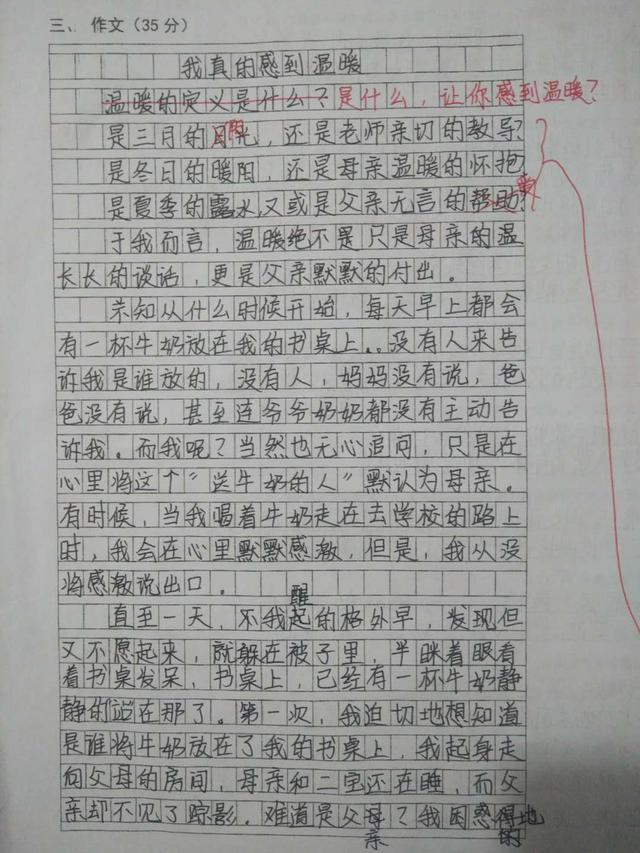 三、作文（35分）
我真的感到温暖
温暖的定义是什么？是什么，让你感到温暖？
是三月的阳光，还是老师亲切的教导？
是冬日的暖阳，还是母亲温暖的怀抱？
是夏季的露水，又或是父亲无言的帮助？
于我而言，温暖绝不是只是母亲的温
长长的谈话，更是父亲默默的付出。
未知从什么时候开始，每天早上都会
有一杯牛奶放在我的书桌上。没有人来告
诉我是谁放的，没有人，妈妈没有说，爸
爸没有说，甚至连爷爷奶奶都没有主动告
诉我。而我呢？当然也无心追问，只是在
心里将这个“送牛奶的人”默认为母亲。
有时候，当我喝着牛奶走在去学校的路上
时，我会在心里默默感激，但是，我从没
将感激说出口。
直至一天，不我醒的格外早，发现但
又不愿起来，就躲在被子里，半眯着眼看
着书桌发呆，书桌上，已经有一杯牛奶静
静的站在那了。第一次，我迫切地想知道
是谁将牛奶放在了我的书桌上，我起身走
向父母的房间，母亲和二宝还在睡，而父
亲却不见了踪影。难道是父亲？我困惑的